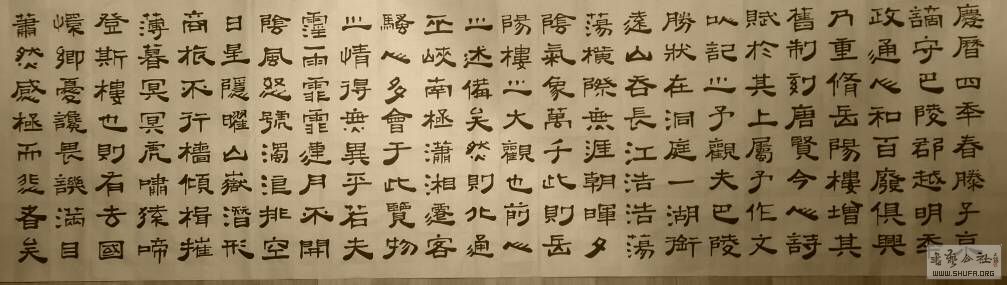 慶曆四年春滕子京
謫守巴陵郡越明年
政通人和百廢俱興
乃重脩岳陽樓增其
舊制刻唐賢今人詩
賦於其上屬予作文
以記之予觀夫巴陵
勝狀在洞庭一湖銜
遠山吞長江浩浩蕩
蕩橫際無涯朝暉夕
陰氣象萬千此則岳
陽樓之大觀也前人
之述備矣然則北通
巫峽南極瀟湘遷客
騷人多會于此覽物
之情得無異乎若夫
霪雨霏霏連月不開
陰風怒號濁浪排空
日星隱曜山嶽潛形
商旅不行檣傾楫摧
薄暮冥冥虎嘯猿啼
登斯樓也則有去國
懷鄉憂讒畏譏滿目
蕭然感極而悲者矣
WWW.SHUFA.ORG